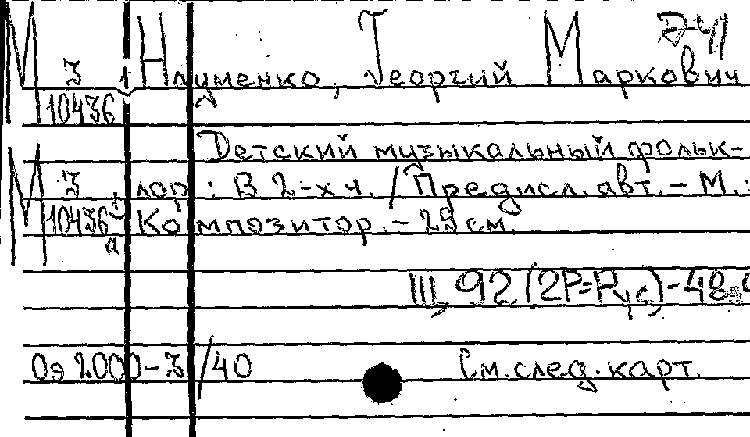 М
Науменко, Георгий Маркович
3
10436
Детский музыкальный фольк-
М 3 лор : В 2-х ч. / Предисл. авт. – М. :
10436 Композитор. – 29 см.
а
Ш, 92 (2Р=Рус)-48.
Оэ 2000-3/40 См. след. карт.